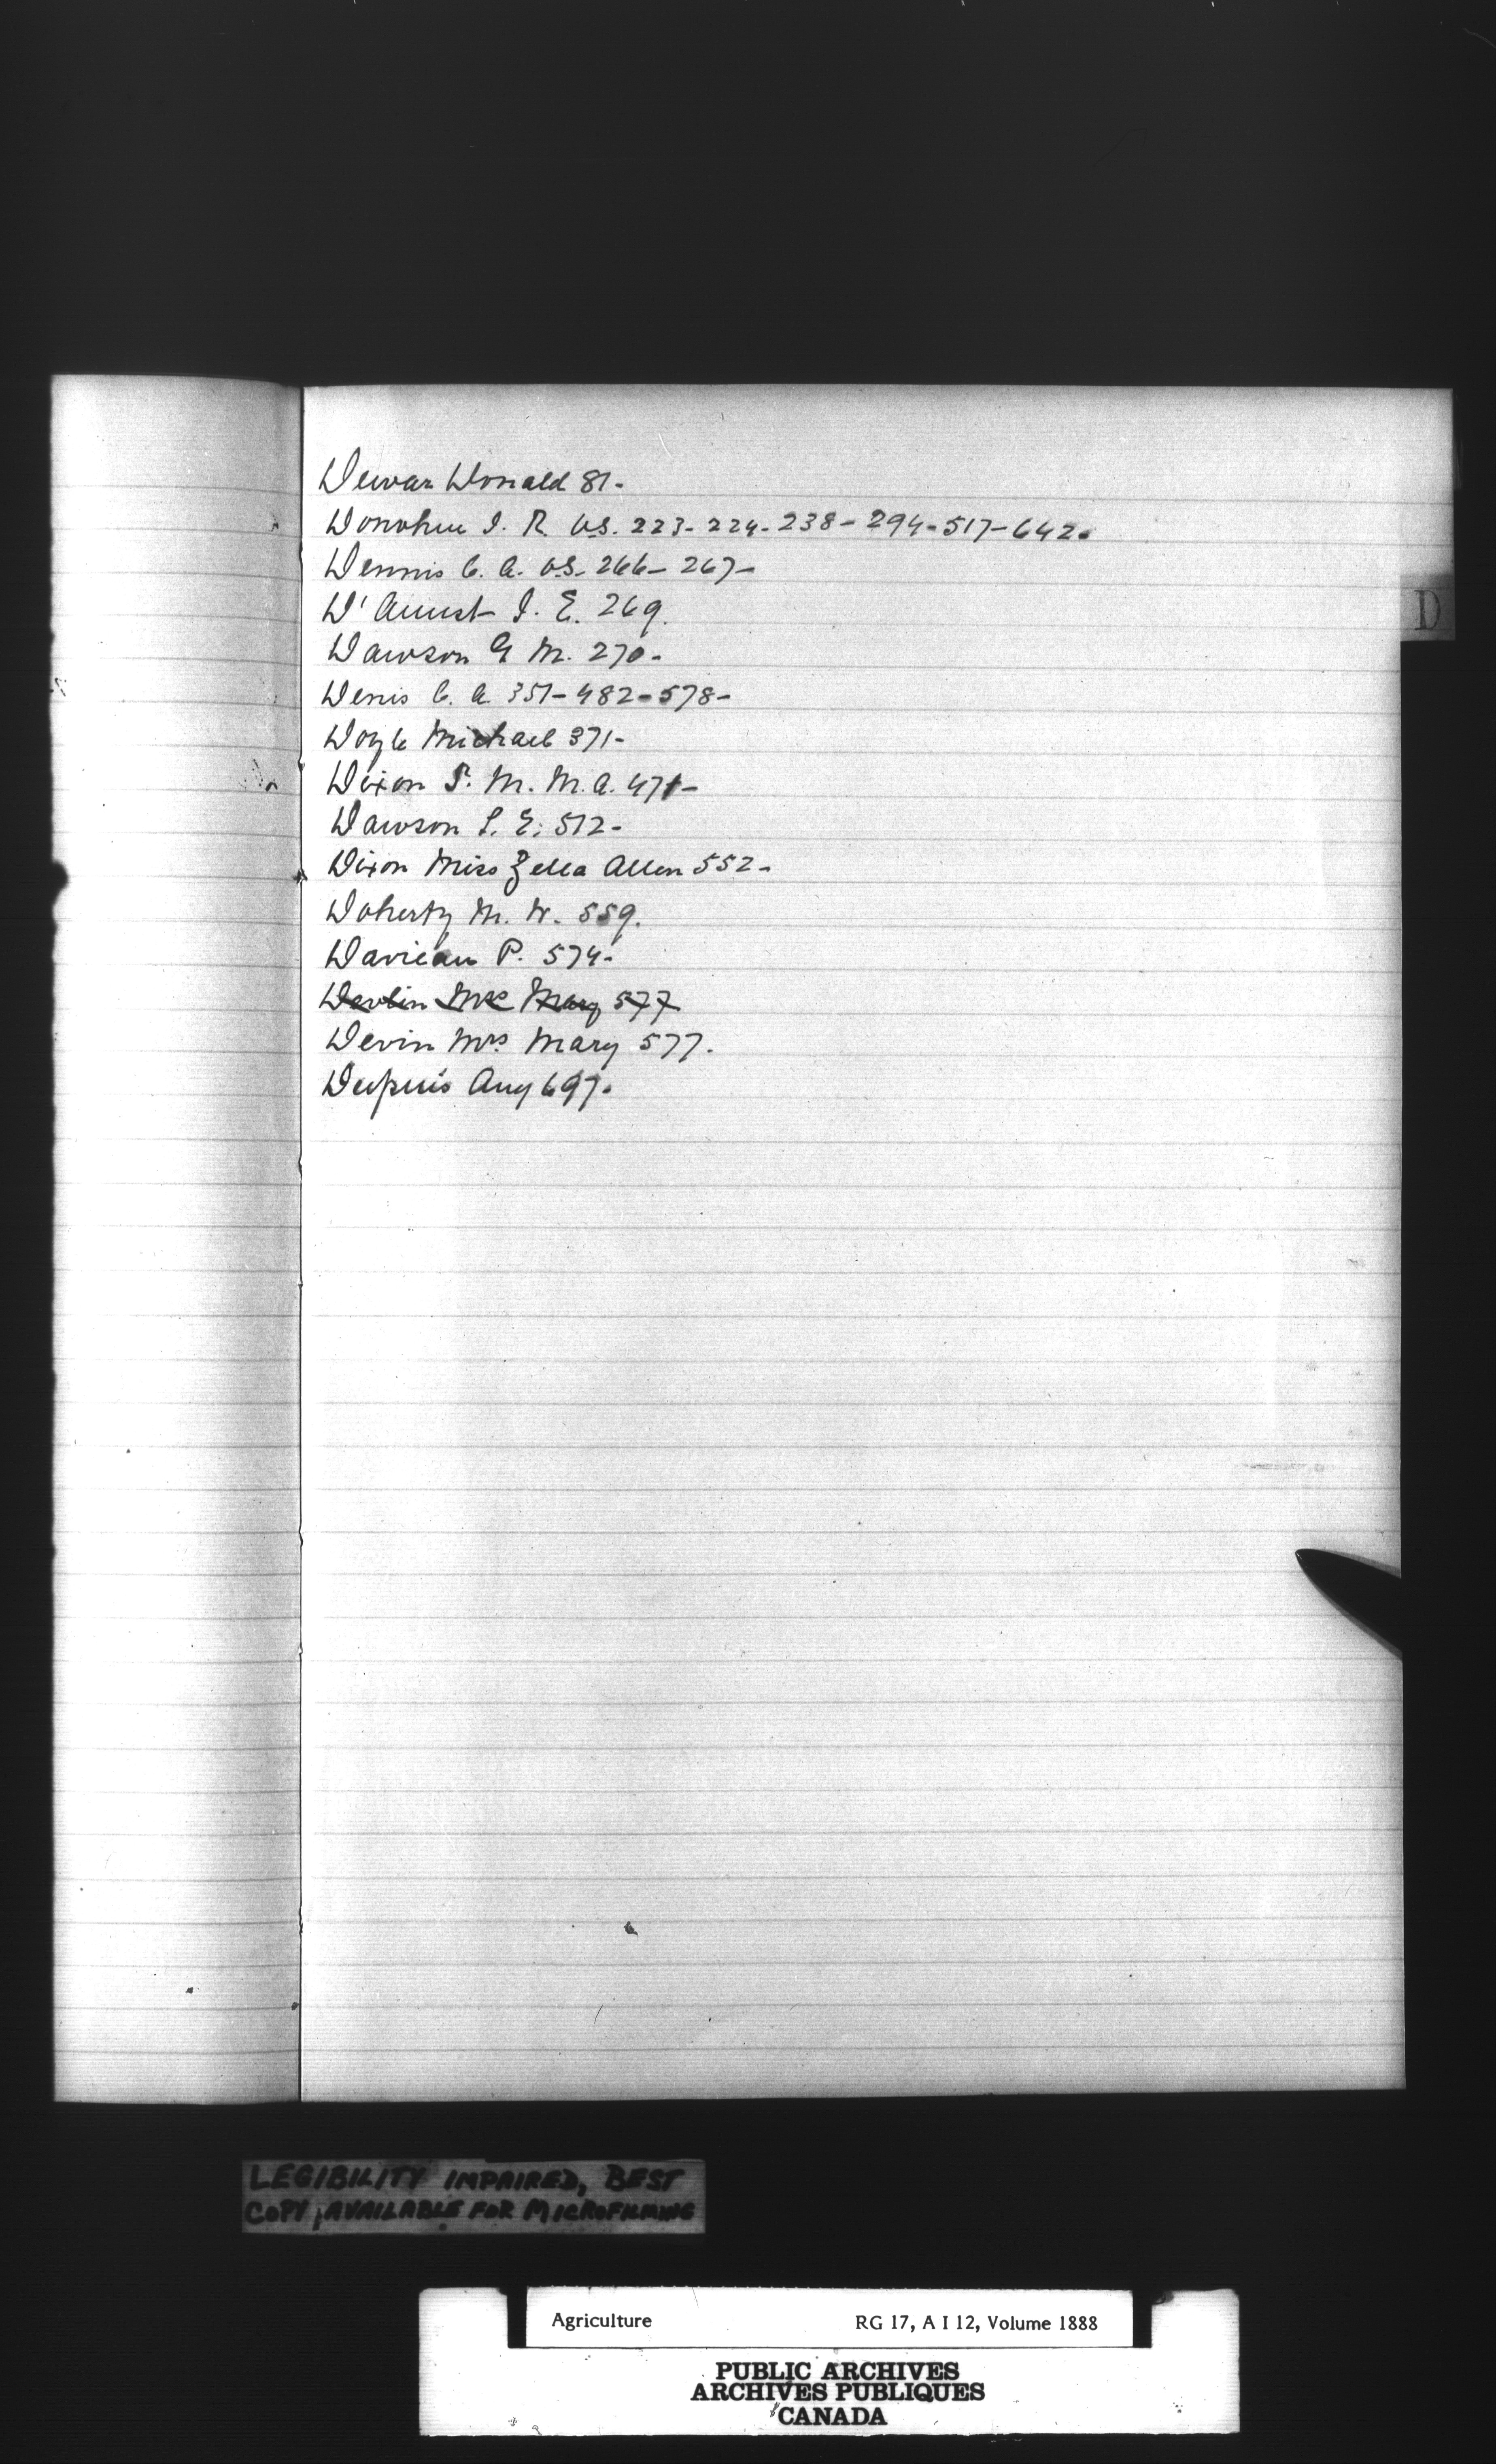 Dewar Donald 81-
Donohue J. R. V.S. 223-224-238-294-517-642-
D
Dennis C. A. V.S. 266-267-
D' J. E. 269.
Dawson G M. 270-
Denis C. A. 351-482-578-
Doyle Michael 371-
Dixon S. M. M.A. 471-
Dawson S. E. 512-
Dixon Miss Zella Allen 552-
Doherty M. W. 559.
Davieau P. 574-
Devlin Mrs Mary 577
Devin Mrs Mary 577.
Dupuis Aug 697-
LEGIBILITY IMPAIRED, BEST
COPY AVAILABLE FOR MICROFILMING
Agriculture RG 17, A I 12, Volume 1888
PUBLIC ARCHIVES
ARCHIVES PUBLIQUES
CANADA